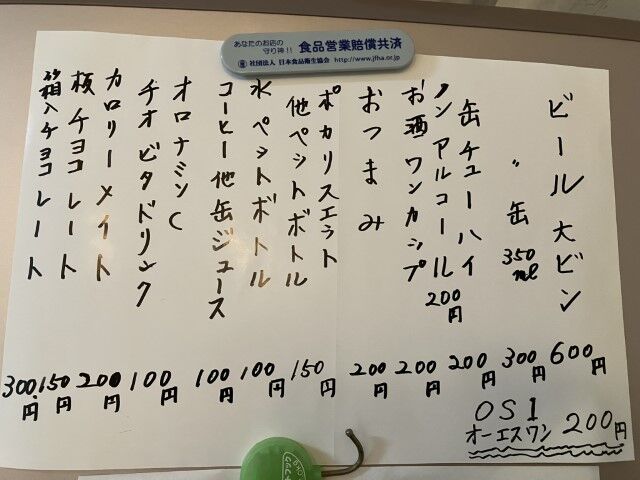 あなたのお店の
守り神!! 食品営業賠償共済
社団法人 日本食品衛生協会 http://www.jfha.or.jp
ビール大ビン 600円
〃 缶 350ml 300円
缶チューハイ 200円
ノンアルコール 200円
お酒ワンカップ 200円
おつまみ 200円
ポカリスエット
他ペットボトル 150円
水ペットボトル 100円
コーヒー他缶ジュース 100円
オロナミンC
チオビタドリンク 100円
カロリーメイト 200円
板チョコレート 150円
箱入チョコレート 300円
OS1
オーエスワン 200円